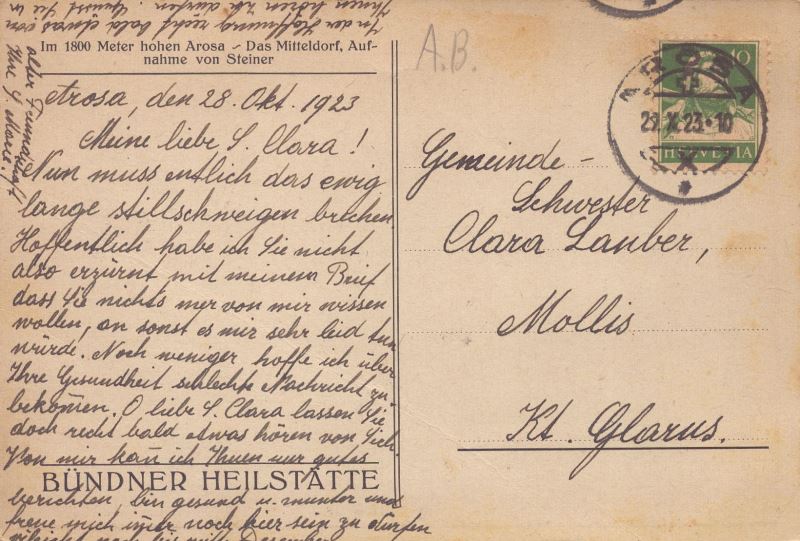 Im 1800 Meter hohen Arosa – Das Mitteldorf, Auf-
nahme von Steiner
Arosa, den 28. Okt. 1923
Meine liebe S. Clara!
Nun muss entlich das ewig
lange stillschweigen brechen.
Hoffentlich habe ich Sie nicht
also erzürnt mit meinem Brief
dass Sie nichts mer von mir wissen
wollen, an sonst es mir sehr leid tun
würde. Noch weniger hoffe ich über
Ihre Gesundheit schlechte Nachricht zu
bekommen. O liebe S. Clara lassen Sie
doch recht bald etwas hören von Sich.
Von mir kañ ich Ihnen nur gutes
BÜNDNER HEILSTÄTTE
berichten, bin gesund u. munter und
freue mich im̄er noch hier sein zu dürfen
vilicht noch bis mitte Dezember.
In der Hoffnung recht bald etwas von
Ihnen hören zu dürfen. Grüsst Sie in
alter Freundschaft
Ihre S. Marie!
A.B.
10
HELVETIA
AROSA
29.X.23.10
Gemeinde-
Schwester
Clara Lauber,
Mollis
Kt. Glarus.